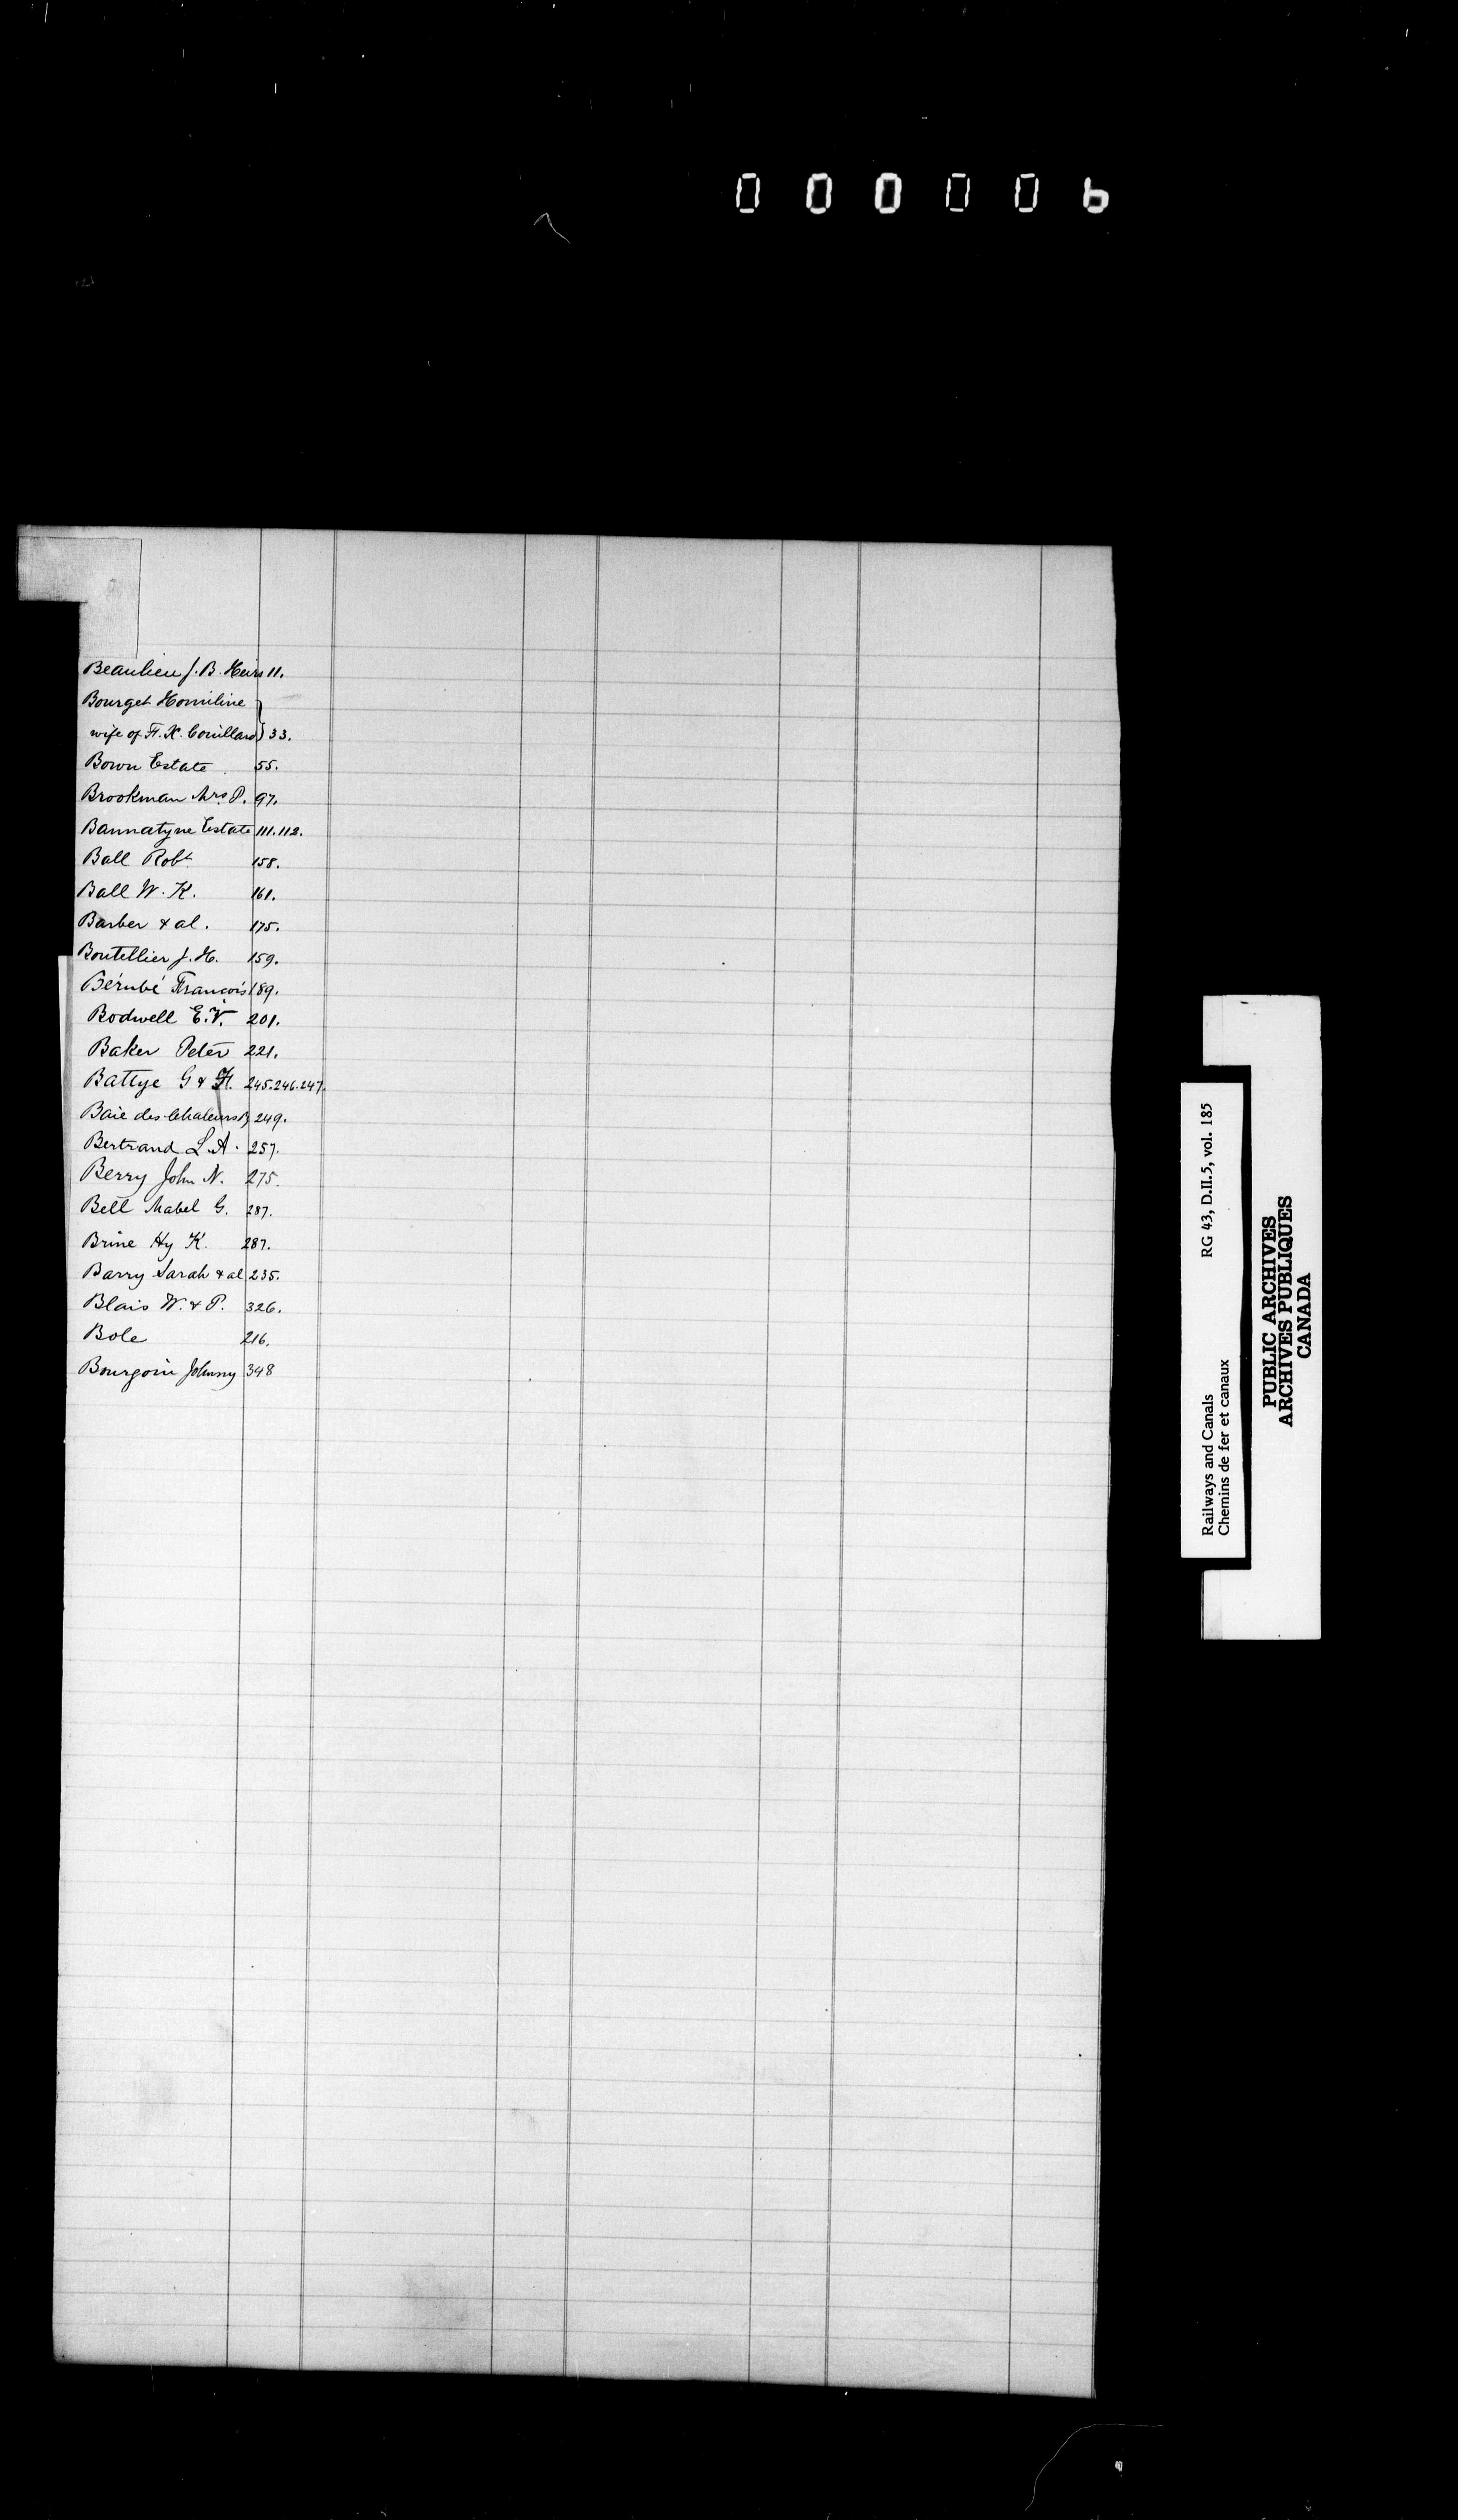 000006
Beaulieu J. B. Heirs 11.
Bourget Homiline
wife of F. X. Couillard } 33.
Bown Estate 55.
Brookman Mrs P. 97.
Bannatyne Estate 111.112.
Ball Robt 158.
Ball W. K. 161.
Barber & al. 175.
Boutellier J. H. 159.
Bérubé François 189.
Bodwell E. V. 201.
Baker Peter 221.
Battye G & H. 245.246.247.
Baie des Chaleurs Ry 249.
Bertrand L. A. 257.
Berry John N. 275.
Bell Mabel G. 287.
Brine Hy K. 287.
Barry Sarah & al 235.
Blais W. & P. 326.
Bole 216.
Bourgoin Johnny 348
Railways and Canals RG 43, D.II.5, vol. 185
Chemins de fer et canaux
PUBLIC ARCHIVES
ARCHIVES PUBLIQUES
CANADA